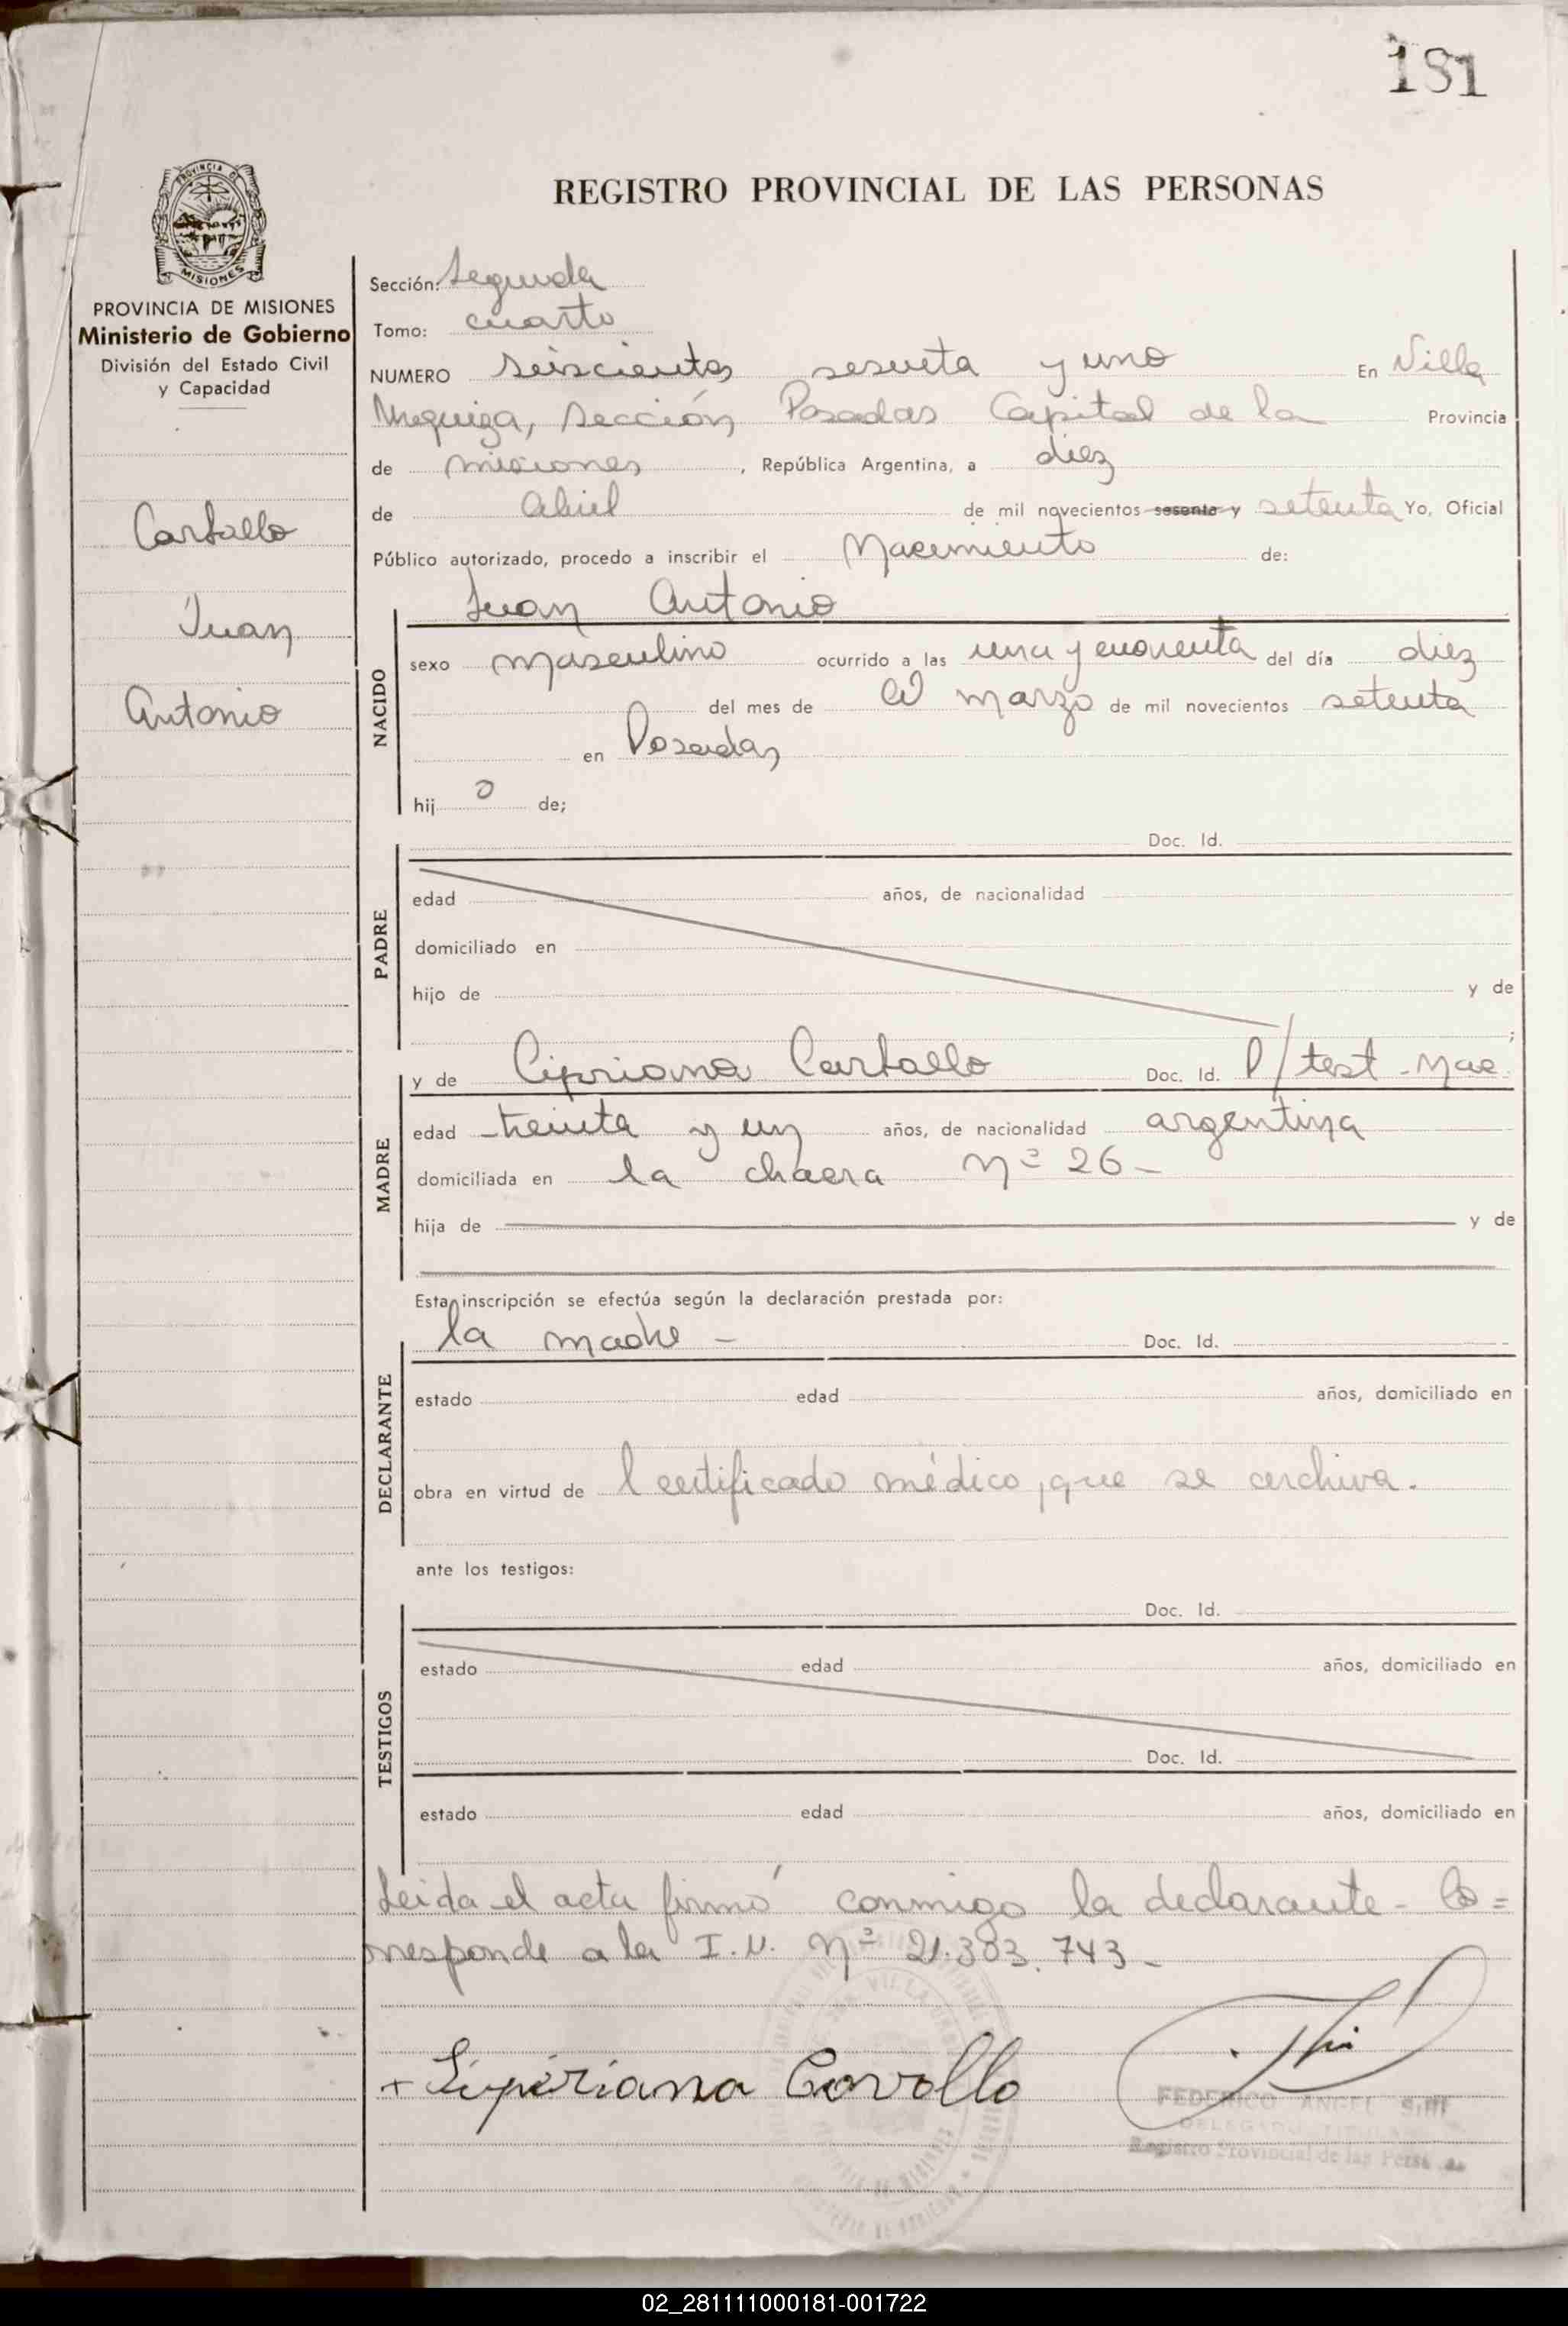 181
PROVINCIA DE
MISIONES
REGISTRO PROVINCIAL DE LAS PERSONAS
PROVINCIA DE MISIONES
Ministerio de Gobierno
División del Estado Civil
y Capacidad
Carballo
Juan
Antonio
Sección: Segunda
Tomo: cuarto
NUMERO seiscientos sesenta y uno En Villa
Urquiza, sección Posadas Capital de la Provincia
de misiones, República Argentina, a diez
de abril de mil novecientos sesenta y setenta Yo, Oficial
Público autorizado, procedo a inscribir el Nacimiento de:
NACIDO
Juan Antonio
sexo masculino ocurrido a las una y cuarenta del día diez
del mes de marzo de mil novecientos setenta
en Posadas
hij o de;
PADRE
Doc. Id.
edad años, de nacionalidad
domiciliado en
hijo de y de
;
MADRE
y de Cipriana Carballo Doc. Id. P/test. Nac.
edad treinta y un años, de nacionalidad argentina
domiciliada en la chacra Nº 26 -
hija de y de
Esta inscripción se efectúa según la declaración prestada por:
DECLARANTE
la madre - Doc. Id.
estado edad años, domiciliado en
obra en virtud de l certificado médico, que se archiva.
ante los testigos:
TESTIGOS
Doc. Id.
estado edad años, domiciliado en
Doc. Id.
estado edad años, domiciliado en
Leida el acta firmó conmigo la declarante - Co=
rresponde a la I.N. Nº 21.303.743 -
+ Siperiana Carvollo
FEDERICO ANGEL
DELEGADO TITULAR
Registro Provincial de las Personas
02_281111000181-001722